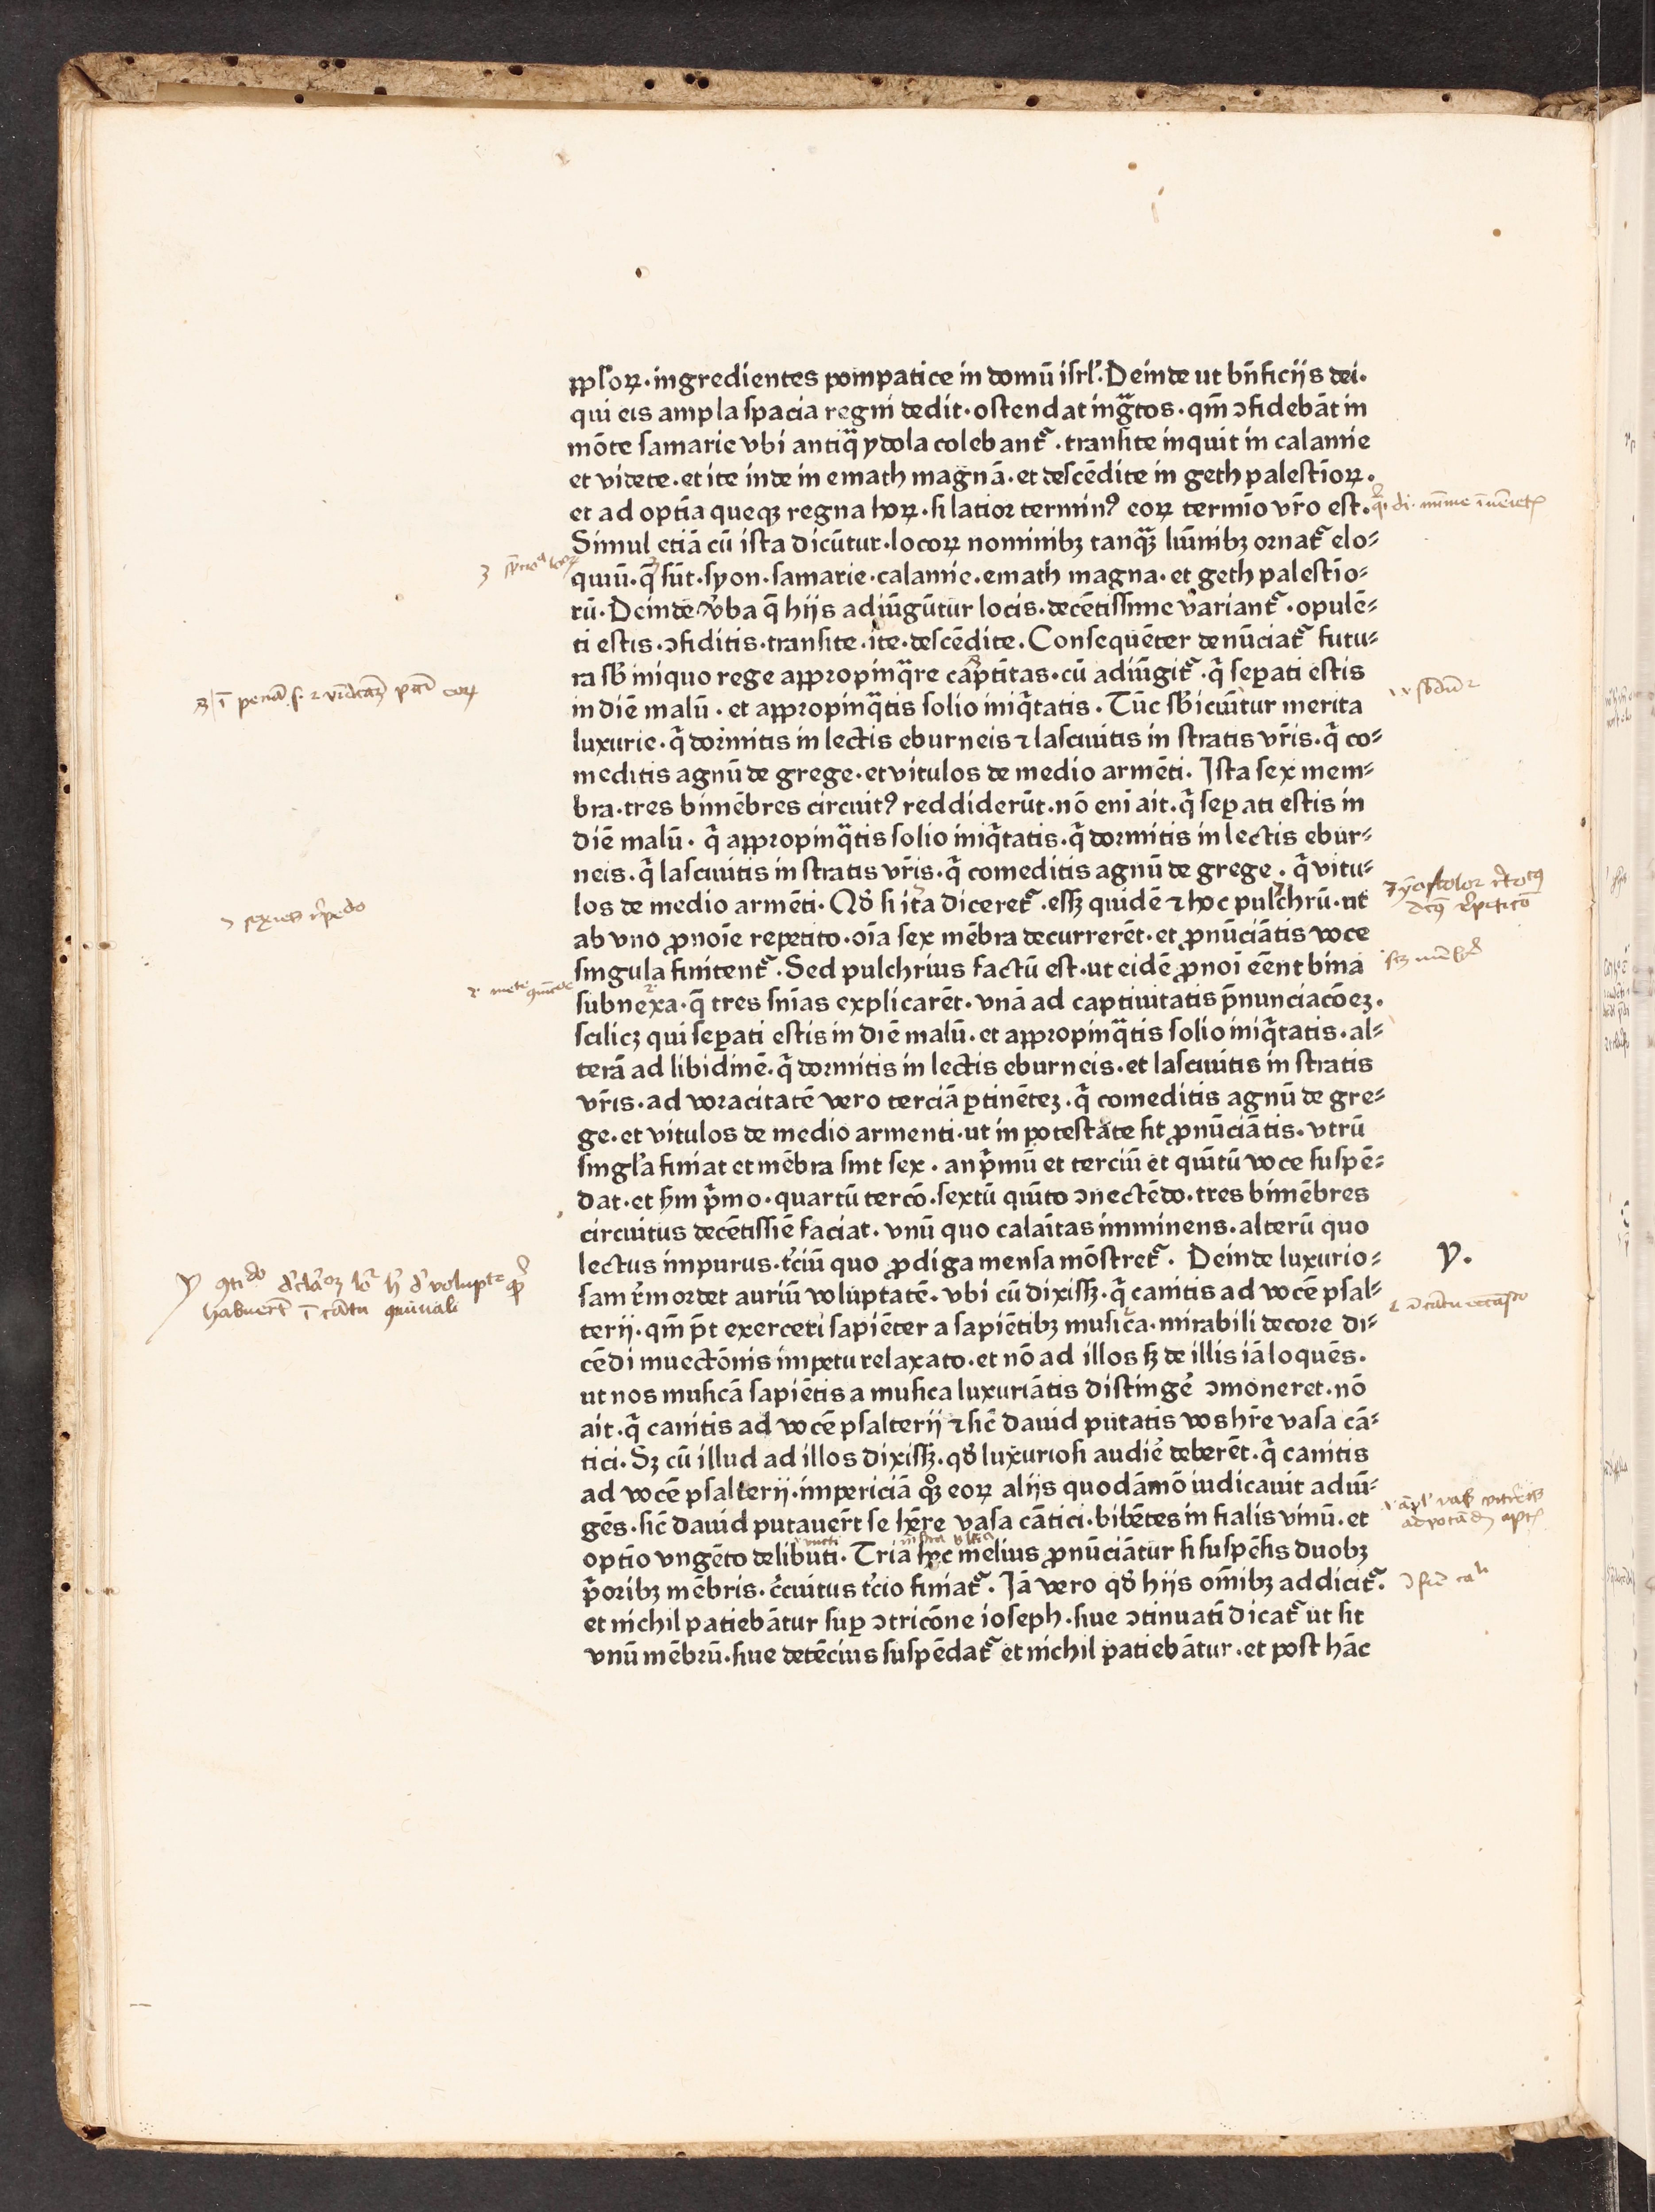 ꝓpl'oꝝ·ingredientes pompatice in domū iſrl'.Deinde ut bn̄ficijs dei.
qui eis ampla ſpacia regni dedit·oſtendat ingͣtos·qm̄ ↄfidebāt in
mōte ſamarie vbi antiqͣ ydola colebant᷑·tranſite inquit in calanne
et videte·et ite inde in emath magnā·et deſcēdite in geth paleſtīoꝝ·
et ad optīa queqꝫ regna hoꝝ·ſi latior terminꝰ eoꝝ termīo vr̄o eſt.
Simul etiā cū iſta dicūtur·locoꝝ nominibꝫ tanqͣꝫ lūinibꝫ ornat᷑ elo⸗
quiū·q̄ ſūt·ſyon·ſamarie·calanne·emath magna·et geth paleſtīo⸗
rū·Deinde v̓ba q̄ hijs adiūgūtur locis·decētiſſime variant᷑·opulē⸗
ti eſtis·ↄfiditis·tranſite·ite·deſcēdite.Conſequēter denūciat᷑ futu⸗
ra ſb̄ iniquo rege appropinqͣre captītas·cū adiūgit᷑·qͥ ſeꝑati eſtis
in diē malū·et appropinqͣtis ſolio iniqͥtatis·Tūc ſb̄iciūtur merita
luxurie·qͥ dormitis in lectis eburneis ⁊ laſciuitis in ſtratis vr̄is·qͥ co⸗
meditis agnū de grege·et vitulos de medio armēti.Iſta ſex mem⸗
bra·tres bimēbres circuitꝰ reddiderūt·nō eni ait·qͥ ſeꝑati eſtis in
diē malū·qͥ appropinqͣtis ſolio iniqͥtatis·qͥ dormitis in lectis ebur⸗
neis·qͥ laſciuitis in ſtratis vr̄is·qͥ comeditis agnū de grege·qͥ vitu⸗
los de medio armēti·Qd̄ ſi ita diceret᷑·eſſꝫ quidē ⁊ hoc pulchrū·ut
ab vno ꝓnoīe repetito·oīa ſex mēbra decurrerēt·et ꝓnūciātis voce
ſingula finirent᷑·Sed pulchrius factū eſt·ut eidē ꝓnoī eēnt bina
ſubnexa·q̄ tres ſnīas explicarēt·vnā ad captiuitatis p̄nunciacōeꝫ·
ſcilicꝫ qui ſeꝑati eſtis in diē malū·et appropinqͣtis ſolio iniqͥtatis·al⸗
terā ad libidinē·qͥ dormitis in lectis eburneis·et laſciuitis in ſtratis
vr̄is·ad voracitatē vero terciā ꝑtinēteꝫ·qͥ comeditis agnū de gre⸗
ge·et vitulos de medio armenti·ut in poteſtate ſit ꝓnūciātis·vtrū
ſingl'a finiat et mēbra ſint ſex·an pͥmū et terciū et quītū voce ſuſpē⸗
dat·et ẜm pͥmo·quartū tercō·ſextū quīto ↄnectēdo·tres bimēbres
circuitus decētiſſiē faciat·vnū quo calaītas imminens·alterū quo
lectus impurus·t̓ciū quo ꝓdiga menſa mōſtret᷑·Deinde luxurio⸗
ſam r̓mordet auriū voluptatē·vbi cū dixiſſꝫ·qͥ canitis ad vocē pſal⸗
terij·qm̄ p̄t exerceri ſapiēter a ſapiētibꝫ muſica·mirabili decore di⸗
cēdi inuectōnis impetu relaxato·et nō ad illos ſꝫ de illis iā loquēs·
ut nos muſicā ſapiētis a muſica luxuriātis diſtinge̓ ↄmoneret·nō
ait·qͥ canitis ad vocē pſalterij ⁊ ſic̄ dauid putatis vos hr̄e vaſa cā⸗
tici·Sꝫ cū illud ad illos dixiſſꝫ·qd̄ luxurioſi audie̓ deberēt·qͥ canitis
ad vocē pſalterij·impericiā qͦꝫ eoꝝ alijs quodāmō iudicauit adiū⸗
gēs·ſic̄ dauid putauer̄t ſe hr̄e vaſa cātici·bibētes in fialis vinū·et
optīo vngēto delibuti·Tria hec melius ꝓnūciātur ſi ſuſpēſis duobꝫ
pͥoribꝫ mēbris·c̓cuitus t̓cio finiat᷑·Iā vero qd̄ hijs om̄ibꝫ addicit᷑·
et nichil patiebātur ſuꝑ ↄtricōne ioſeph·ſiue ↄtinuatī dicat᷑ ut ſit
vnū mēbrū·ſiue detēcius ſuſpēdat᷑ et nichil patiebātur·et poſt hāc
y.